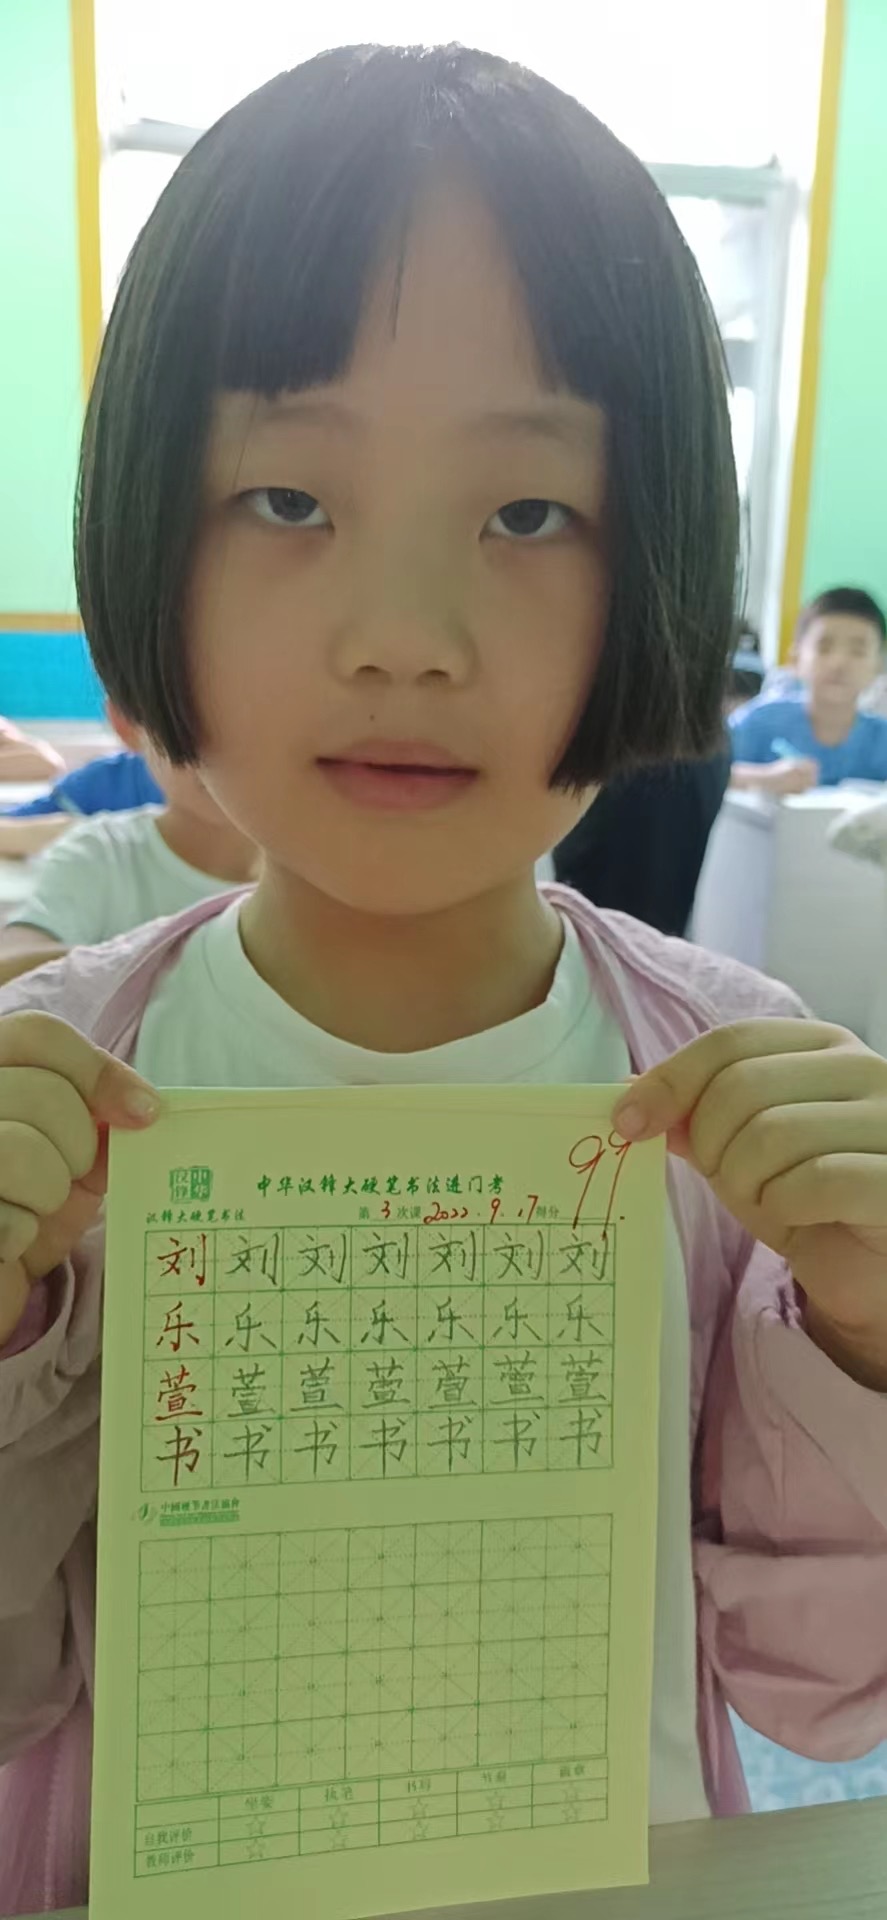 99.
中华汉锋大硬笔书法进门考
汉锋大硬笔书法
第 3 次课 2022.9.17 得分
刘 刘 刘 刘 刘 刘 刘
乐 乐 乐 乐 乐 乐 乐
萱 萱 萱 萱 萱 萱 萱
书 书 书 书 书 书 书
中国硬笔书法协会
坐姿 执笔 书写
自我评价 ☆ ☆ ☆ ☆ ☆
教师评价 ☆ ☆ ☆ ☆ ☆